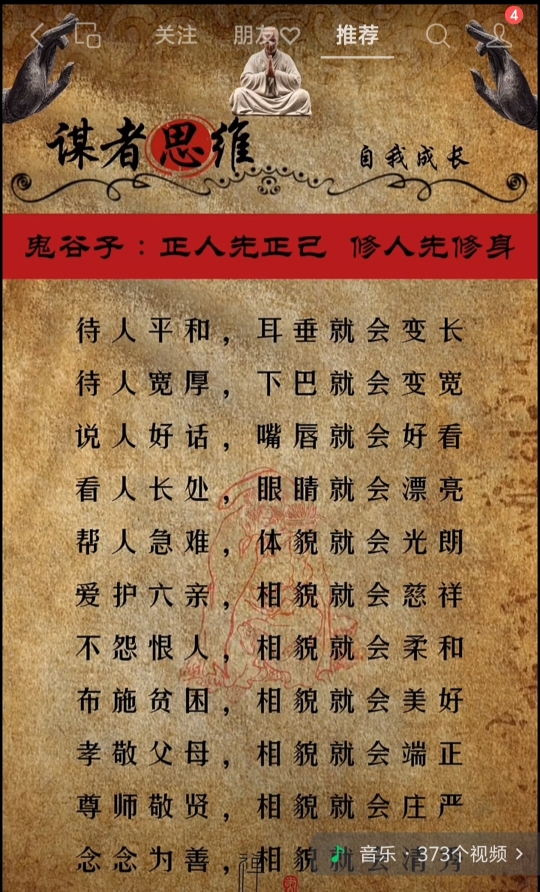 4
关注 朋友♡ 推荐
谋者思维
自我成长
鬼谷子：正人先正己 修人先修身
待人平和，耳垂就会变长
待人宽厚，下巴就会变宽
说人好话，嘴唇就会好看
看人长处，眼睛就会漂亮
帮人急难，体貌就会光朗
爱护六亲，相貌就会慈祥
不怨恨人，相貌就会柔和
布施贫困，相貌就会美好
孝敬父母，相貌就会端正
尊师敬贤，相貌就会庄严
念念为善，相貌就会清秀
禅
音乐：373个视频